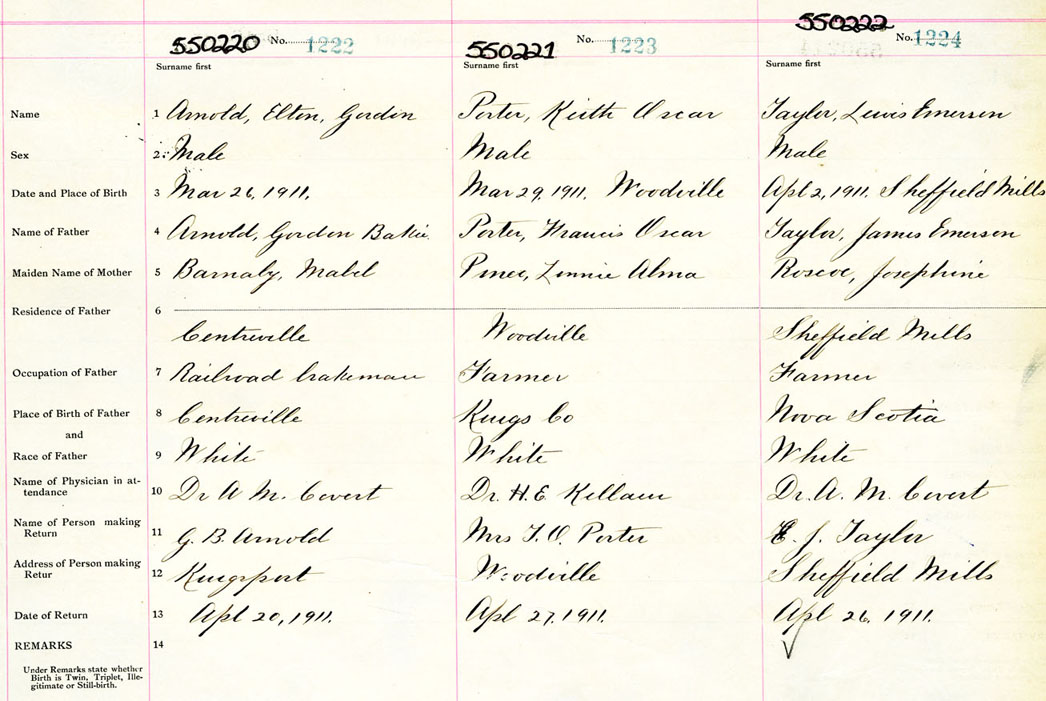 550220 No. 1222 550221 No. 1223 550222 No. 1224
Surname first Surname first Surname first
Name 1 Arnold, Elton, Gordon Porter, Keith Oscar Taylor, Lewis Emerson
Sex 2 Male Male Male
Date and Place of Birth 3 Mar 26, 1911. Mar 29, 1911. Woodville Apl 2, 1911. Sheffield Mills
Name of Father 4 Arnold, Gordon Porter, Francis Oscar Taylor, James Emerson
Maiden Name of Mother 5 Barnaby, Mabel Pineo, Linnie Alma Roscoe, Josephine
Residence of Father 6
Centreville Woodville Sheffield Mills
Occupation of Father 7 Railroad brakeman Farmer Farmer
Place of Birth of Father 8 Centreville Kings Co Nova Scotia
and
Race of Father 9 White White White
Name of Physician in at-
tendance 10 Dr A M. Covert Dr. H. E. Kellam Dr. A. M. Covert
Name of Person making
Return 11 G. B. Arnold Mrs F. O. Porter E. J. Taylor
Address of Person making
Retur 12 Kingsport Woodville Sheffield Mills
Date of Return 13 Apl 20, 1911. Apl 27, 1911. Apl 26, 1911.
REMARKS 14
Under Remarks state whether
Birth is Twin, Triplet, Ille-
gitimate or Still-birth.